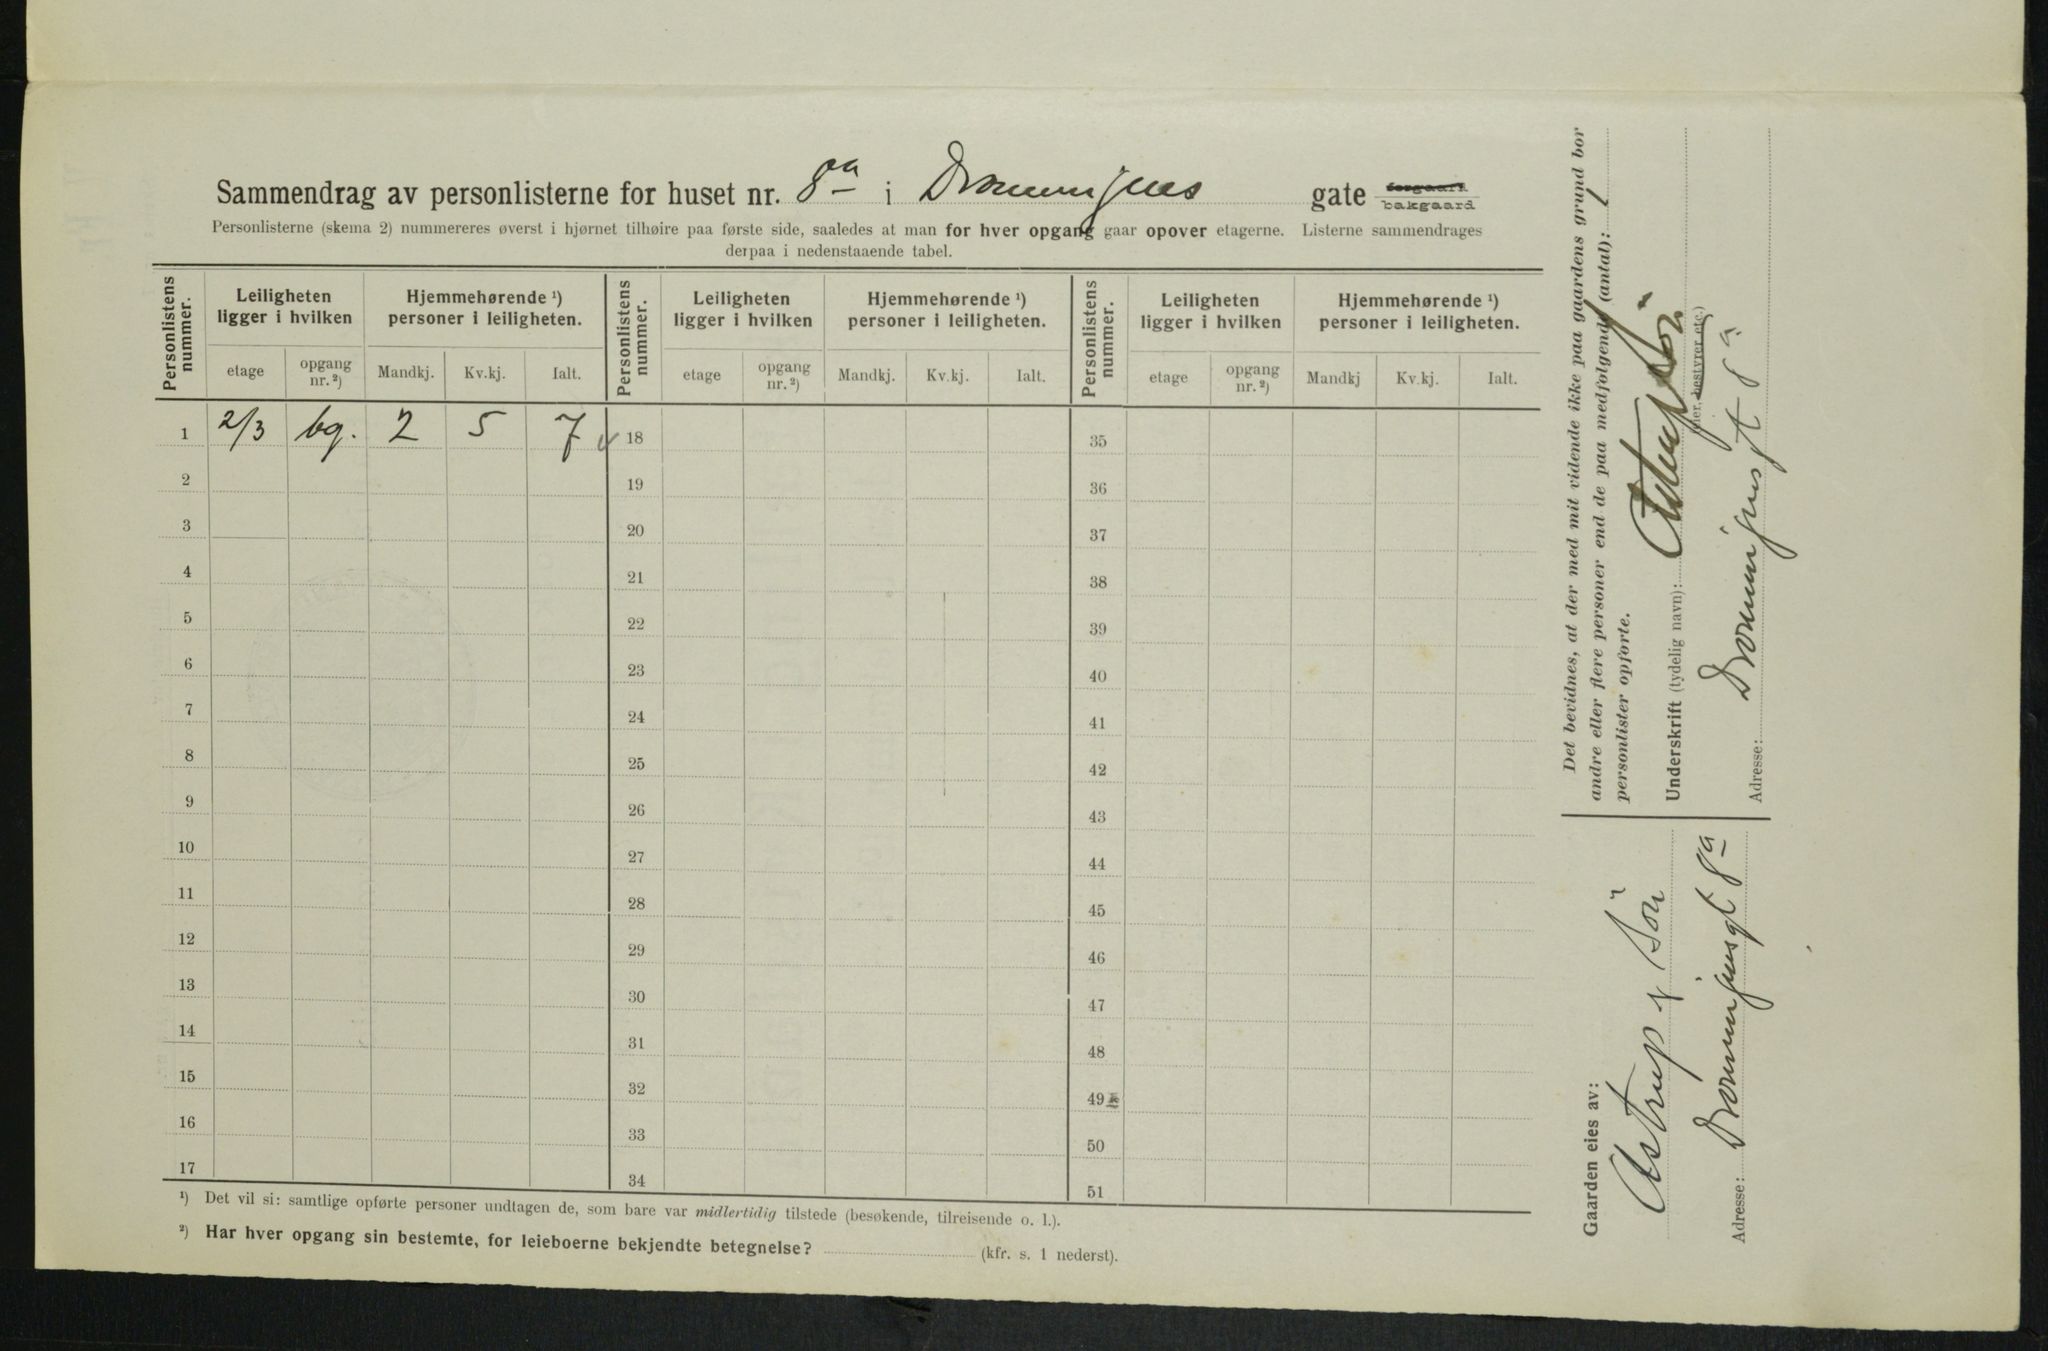 Sammendrag av personlisterne for huset nr. 8a i Dronningens gate forgaard
bakgaard
Personlisterne (skema 2) nummereres øverst i hjørnet tilhøire paa første side, saaledes at man for hver opgang gaar opover etagerne. Listerne sammendrages
derpaa i nedenstaaende tabel.
Personlistens nummer. Leiligheten ligger i hvilken Hjemmehørende ¹) personer i leiligheten. Personlistens nummer. Leiligheten ligger i hvilken Hjemmehørende ¹) personer i leiligheten. Personlistens nummer. Leiligheten ligger i hvilken Hjemmehørende ¹) personer i leiligheten.
etage opgang nr. ²) Mandkj. Kv.kj. Ialt. etage opgang nr. ²) Mandkj. Kv.kj. Ialt. etage opgang nr. ²) Mandkj Kv.kj. Ialt.
1 2/3 bg. 2 5 7 18 35
2 19 36
3 20 37
4 21 38
5 22 39
6 23 40
7 24 41
8 25 42
9 26 43
10 27 44
11 28 45
12 29 46
13 30 47
14 31 48
15 32 49
16 33 50
17 34 51
¹) Det vil si: samtlige opførte personer undtagen de, som bare var midlertidig tilstede (besøkende, tilreisende o. l.).
²) Har hver opgang sin bestemte, for leieboerne bekjendte betegnelse? (kfr. s. 1 nederst).
Det bevidnes, at der med mit vidende ikke paa gaardens grund bor
andre eller flere personer end de paa medfølgende (antal): 1
personlister opførte.
Underskrift (tydelig navn): Astrup & Søn
(eier, bestyrer etc.)
Adresse: Dronningensgt 8a
Gaarden eies av:
Astrup & Søn
Adresse: Dronningensgt 8a